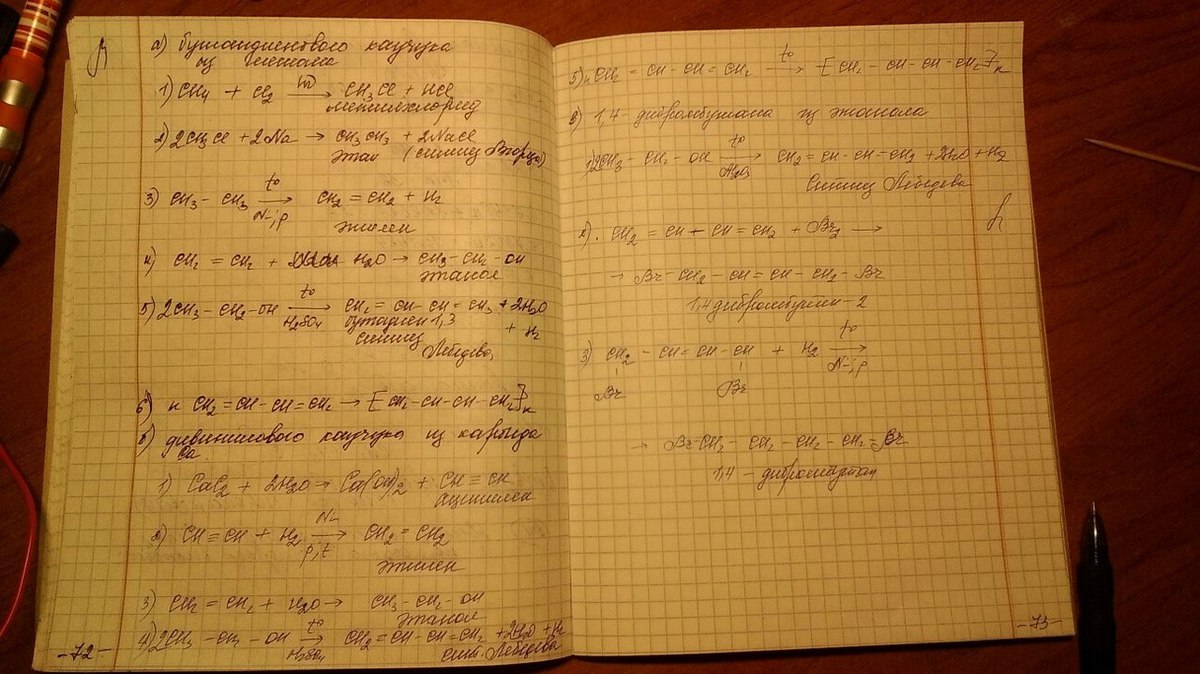 а) бутандиенового каучука
из метана
1) CH4 + Cl2 hν → CH3Cl + HCl
метилхлорид
2) 2CH3Cl + 2Na → CH3CH3 + 2NaCl
этан (синтез Вюрца)
3) CH3 - CH3 t° → Ni, p CH2 = CH2 + H2
этилен
4) CH2 = CH2 + H2O → CH3 - CH2 - OH
этанол
5) 2CH3 - CH2 - OH t° → H2SO4 CH2 = CH - CH = CH3 + 2H2O
бутадиен 1,3 + H2
синтез
Лебедева
6) н CH2 = CH - CH = CH2 → [CH2 - CH - CH - CH2]н
б) дивинилового каучука из карбида
Ca.
1) CaC2 + 2H2O → Ca(OH)2 + CH ≡ CH
ацетилен
2) CH ≡ CH + H2 Ni → p, t CH2 = CH2
этилен
3) CH2 = CH2 + H2O → CH3 - CH2 - OH
этанол
4) 2CH3 - CH2 - OH t° → H2SO4 CH2 = CH - CH = CH2 + 2H2O + H2
синт. Лебедева
- 72 -
5) н CH2 = CH - CH = CH2 t° → [CH2 - CH - CH - CH2]н
в) 1,4 дибромбутана из этанола
1) 2CH3 - CH2 - OH t° → Al2O3 CH2 = CH - CH = CH2 + 2H2O + H2
Синтез Лебедева
2). CH2 = CH - CH = CH2 + Br2 →
→ Br - CH2 - CH = CH - CH2 - Br
1,4 дибромбутен - 2
3) CH2 - CH = CH - CH + H2 t° → Ni, p
Br Br
→ Br - CH2 - CH2 - CH2 - CH2 - Br
1,4 - дибромбутан
- 73 -